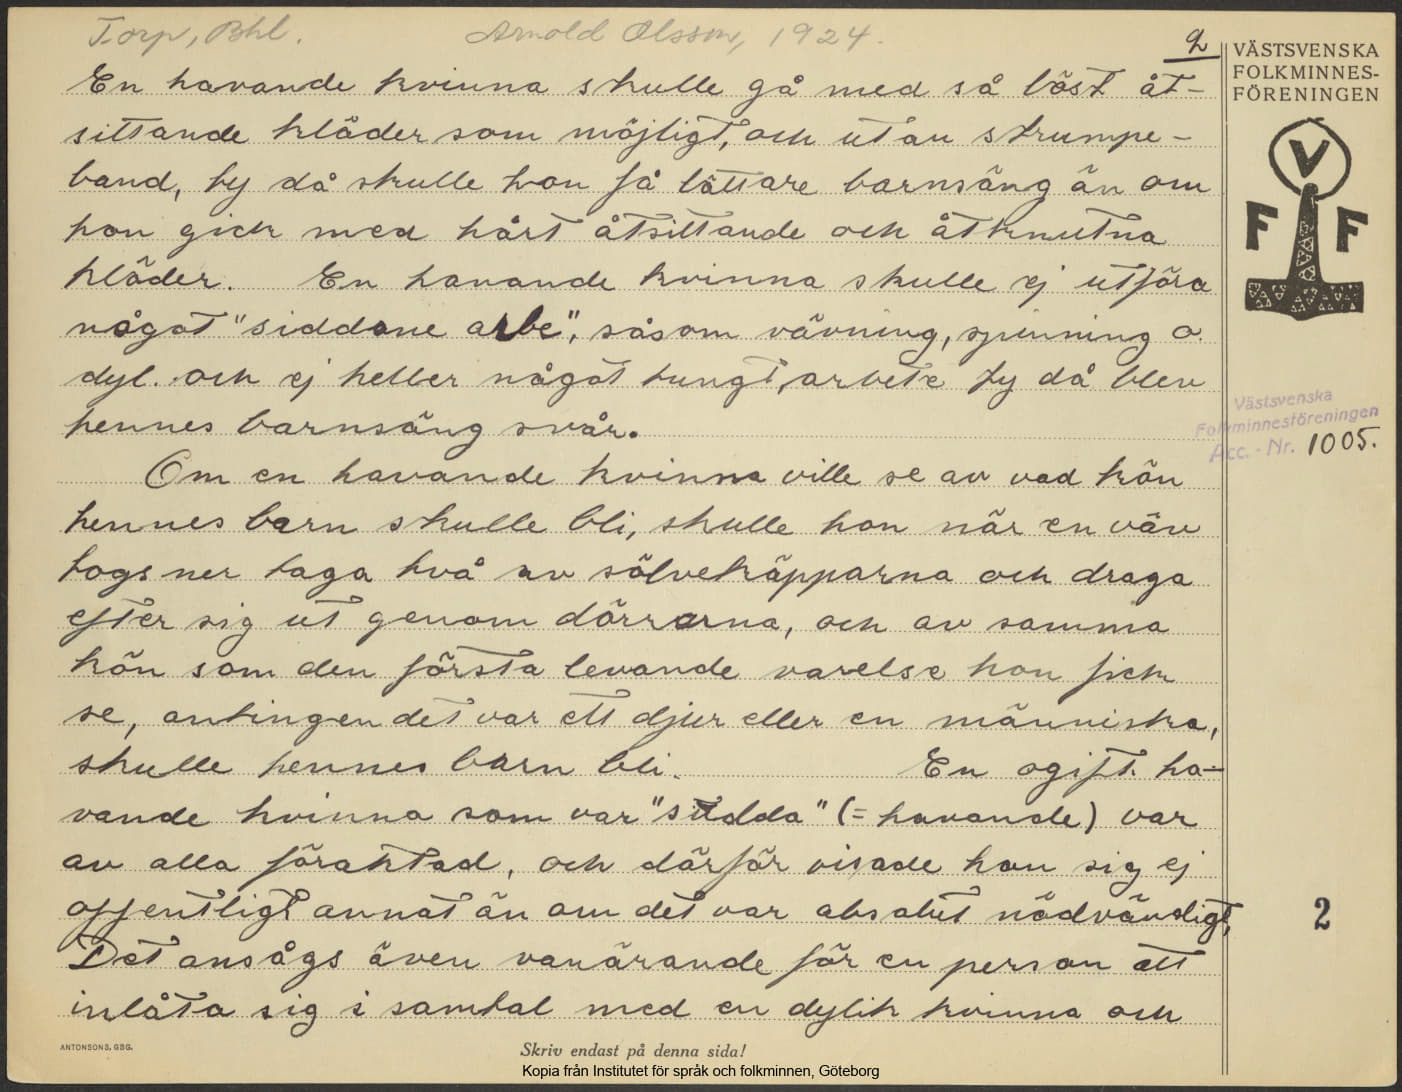 Torp, Bhl. Arnold Olsson, 1924.
2
VÄSTSVENSKA
FOLKMINNES-
FÖRENINGEN
V
F F
En havande kvinna skulle gå med så löst åt-
sittande kläder som möjligt, och utan strumpe-
band, ty då skulle hon få lättare barnsäng än om
hon gick med hårt åtsittande och åtknutna
kläder. En havande kvinna skulle ej utföra
något "siddane arbe", såsom vävning, spinning o.
dyl. och ej heller något tungt, arbete ty då blev
hennes barnsäng svår.
Västsvenska
Folkminnesföreningen
Acc. - Nr. 1005.
Om en havande kvinna ville se av vad kön
hennes barn skulle bli, skulle hon när en väv
togs ner taga två av sölvekäpparna och draga
efter sig ut genom dörrarna, och av samma
kön som den första levande varelse hon fick
se, antingen det var ett djur eller en människa,
skulle hennes barn bli. En ogift ha-
vande kvinna som var "südda" (= havande) var
av alla föraktad, och därför visade hon sig ej
offentligt annat än om det var absolut nödvändigt,
Det ansågs även vanärande för en person att
inlåta sig i samtal med en dylik kvinna och
2
ANTONSONS, GBG.
Skriv endast på denna sida!
Kopia från Institutet för språk och folkminnen, Göteborg